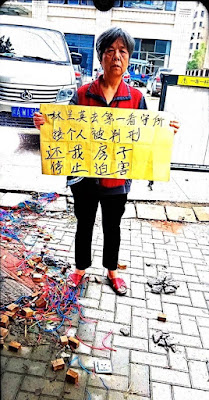 林英去第一看守所
个人被判刑
还我房子
停止迫害